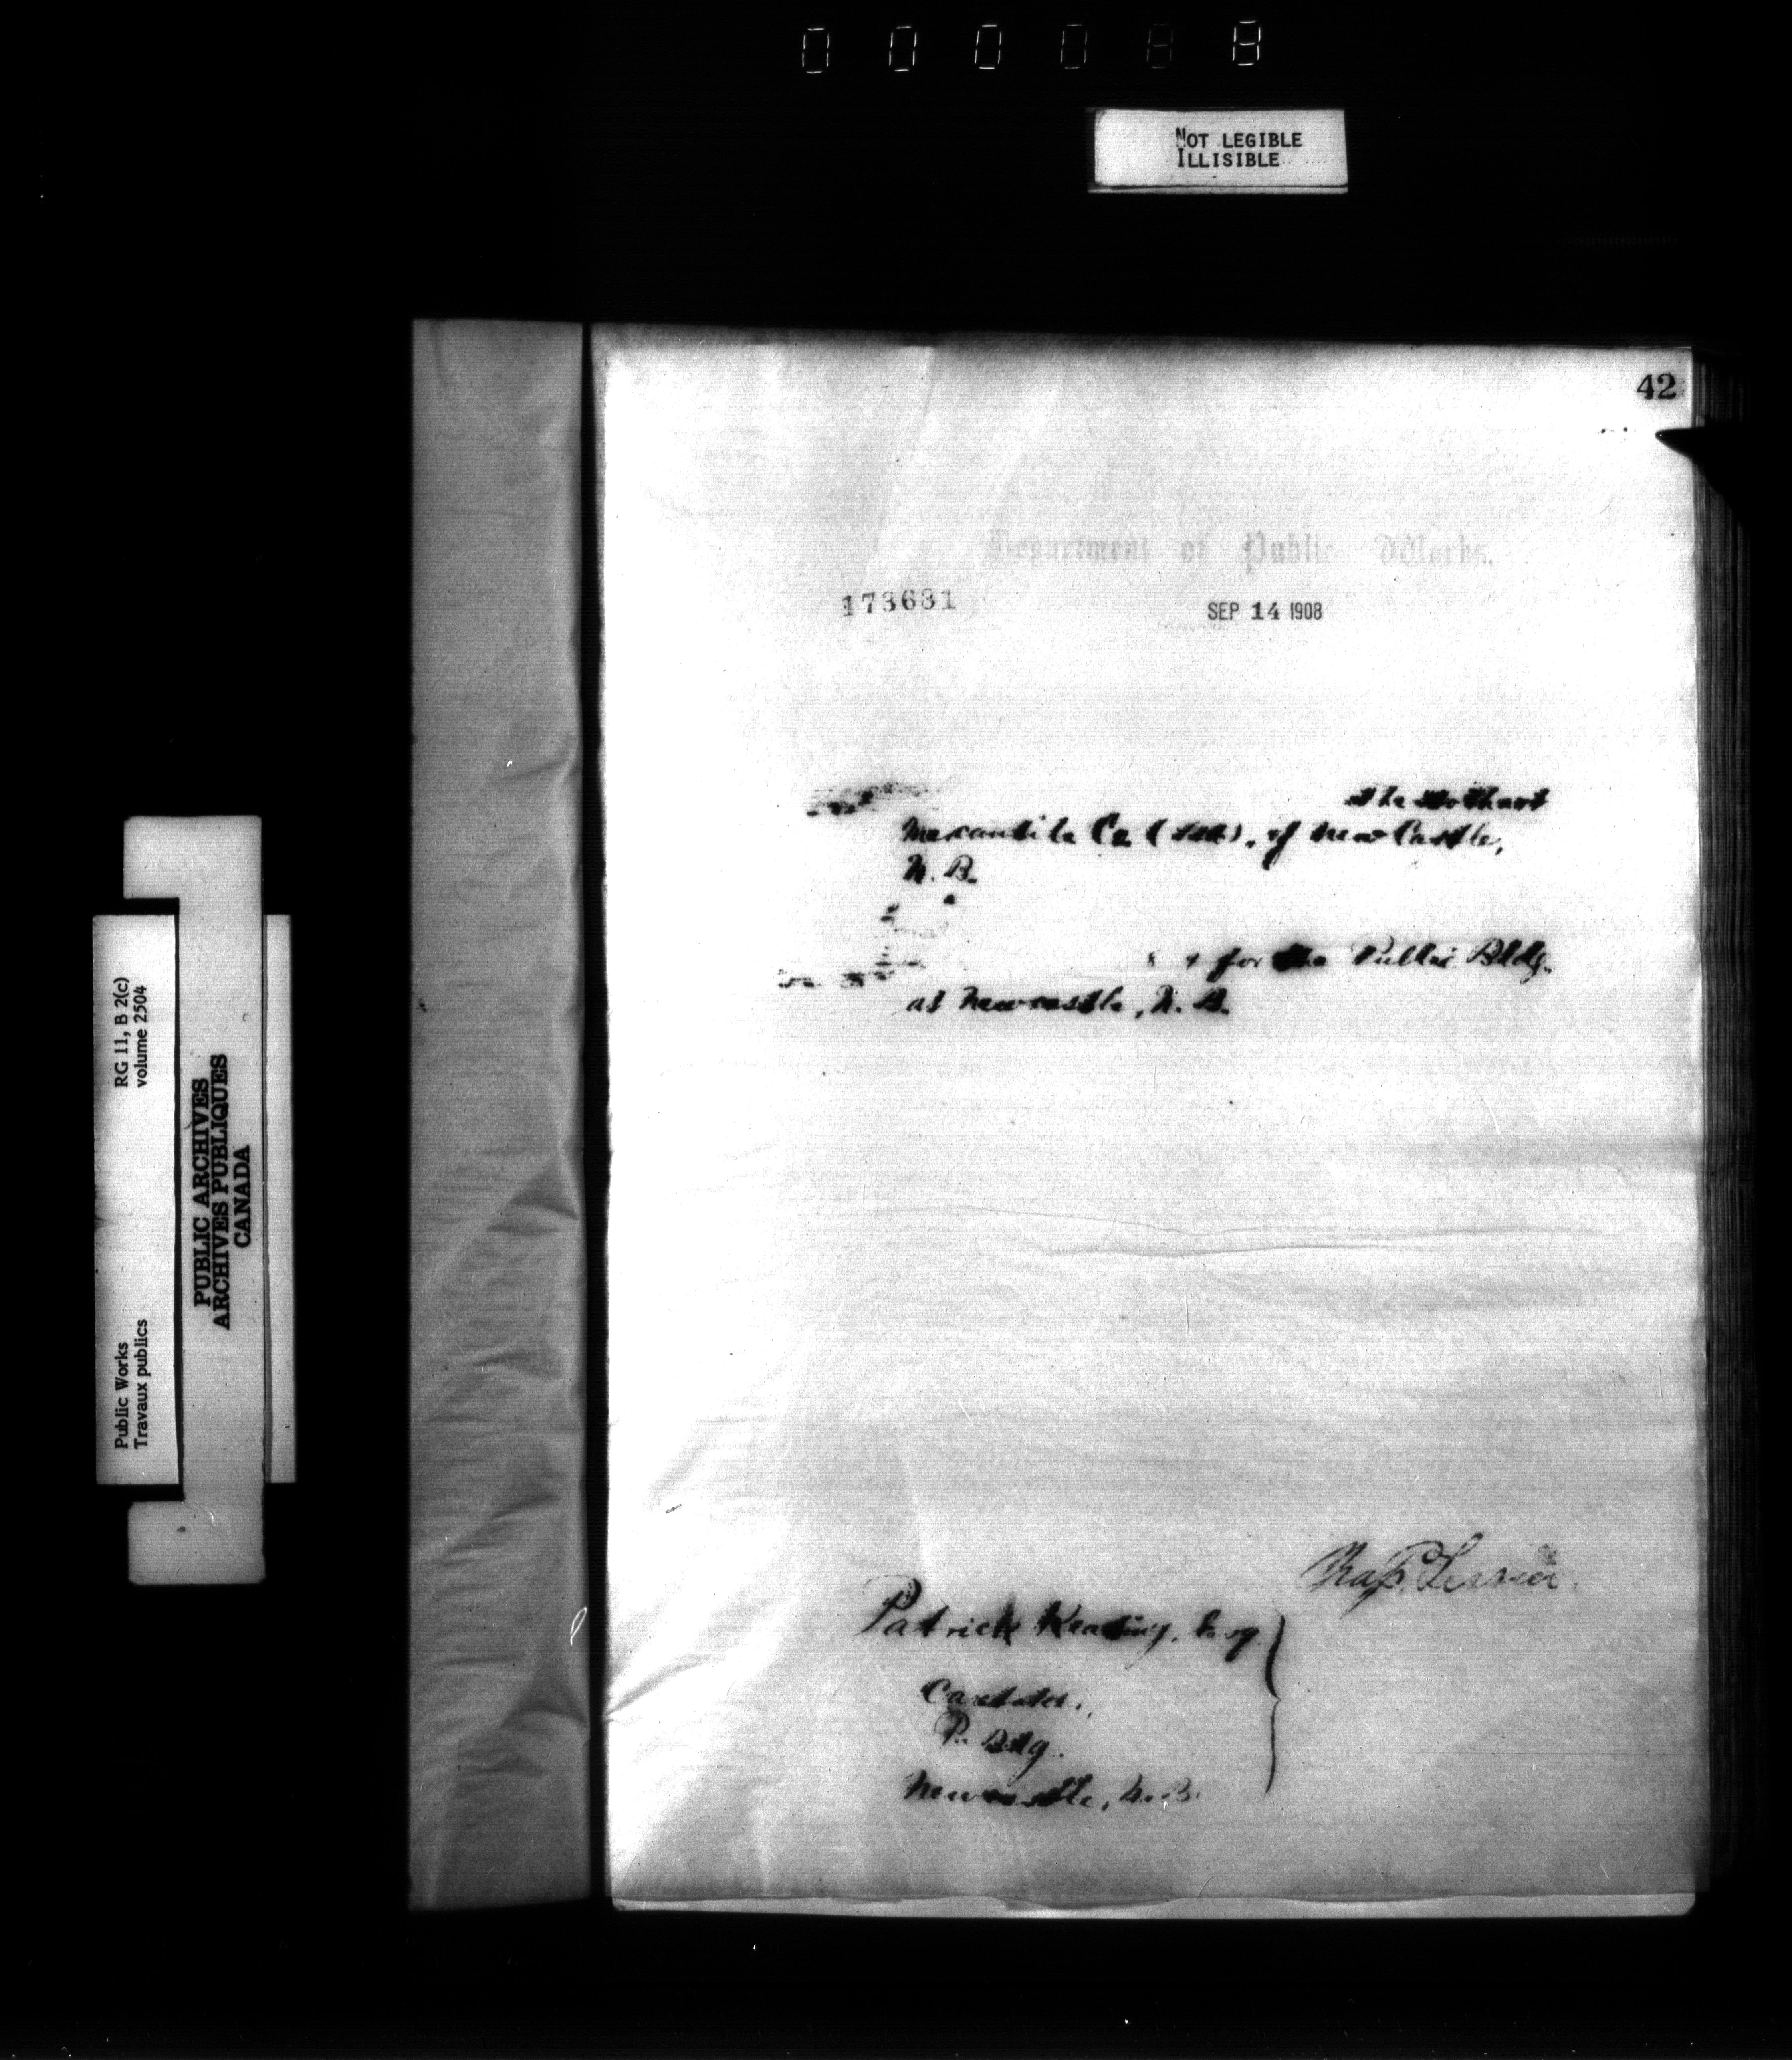 000088
NOT LEGIBLE
ILLISIBLE
42
Department of Public Works.
173631
SEP 14 1908
The Stothart
Mercantile Co. (Ltd), of New Castle,
N. B.
for the Public Bldg.
at Newcastle, N. B.
Nap. Tessier.
Patrick Keating, Esq.
Caretaker,
P. Bldg.
Newcastle, N. B.
Public Works
Travaux publics
RG 11, B 2(c)
volume 2504
PUBLIC ARCHIVES
ARCHIVES PUBLIQUES
CANADA